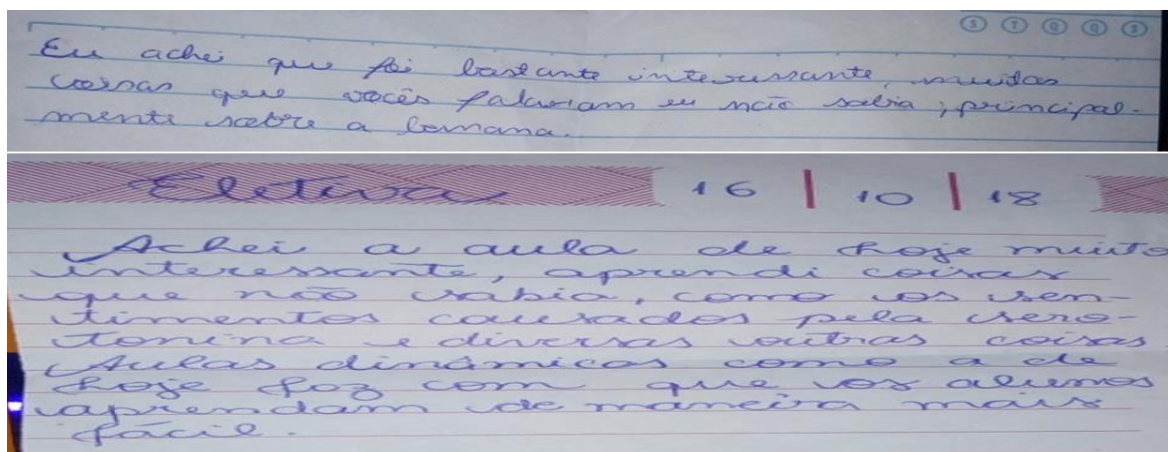 S T Q Q S
Eu achei que foi bastante interessante, muitas
coisas que vocês falaram eu não sabia, principal-
mente sobre a banana.
Eletiva 16 | 10 | 18
Achei a aula de hoje muito
interessante, aprendi coisas
que não sabia, como os sen-
timentos causados pela sero-
tonina e diversas outras coisas
Aulas dinâmicas como a de
hoje faz com que os alunos
aprendam de maneira mais
fácil.